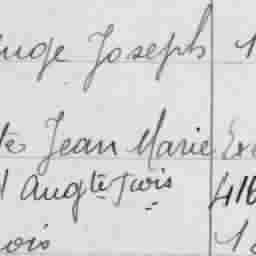 uge Joseph 1
te Jean Marie Ex
Augte Fcois 416
ois 1